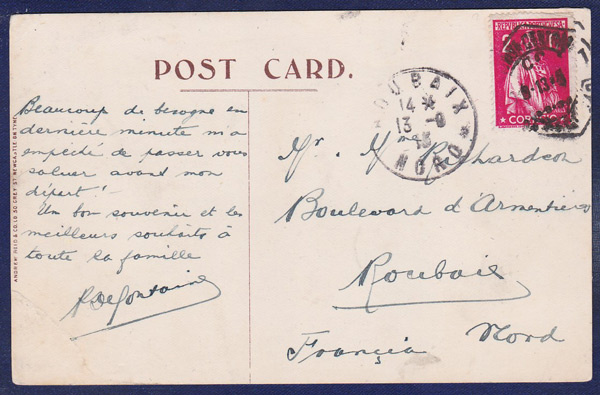 POST CARD.
Beaucoup de besogne en
dernière minute m'a
empêché de passer vous
saluer avant mon
départ!
Un bon souvenir et les
meilleurs souhaits à
toute la famille
R Defontaine
Mr. Mme Richardson
Boulevard d'Armentières
Roubaix
Nord
França
ROUBAIX
14 *
13 -9
15
NORD
REPUBLICA PORTUGUESA
2
CORREIO
ANDREW REID & CO. LD 50 GREY ST. NEWCASTLE ON TYNE